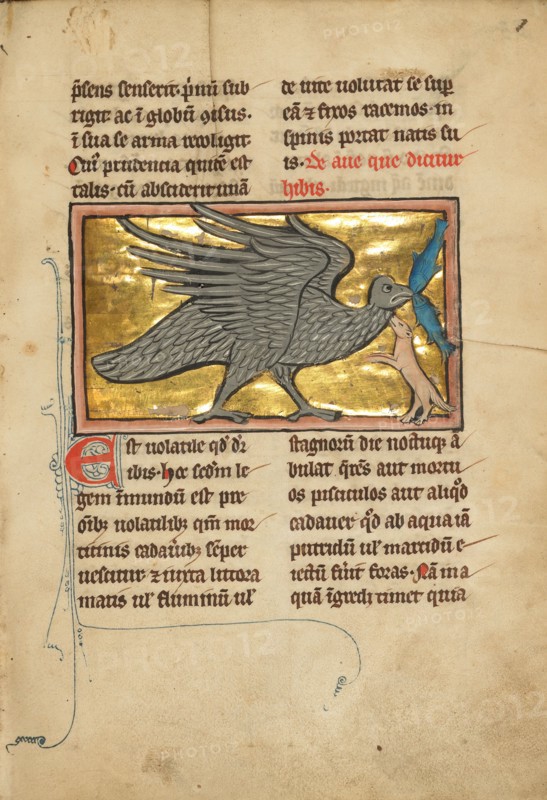 p̄sens senserit· p̄mū sub
rigit ac ī globū ꝯisus·
ī sua se arma reuoligit·
Cui' prudencia quidē est
talis· cū absciderit uuā
de uite uolutat se sup̄
eā ⁊ fixos racemos· in
spinis portat natis su
is· De aue que dicitur
hibis·
Est uolatile qd̄ dr̄
ibis· hoc sc̄dm le
gem īmundū est pre
oīb; uolatilib; qm̄ mor
ticinis cadauib; sēper
uescitur ⁊ iuxta littora
maris ul' fluminū ul'
stagnorū die noctuq; ā
bulat q̄res aut mortu
os pisciculos aut aliqd̄
cadauer qd̄ ab aqua iā
putridū ul' marcidū e
iectū fūit foras· Nā in a
quā īgredi timet quia
PHOTO12